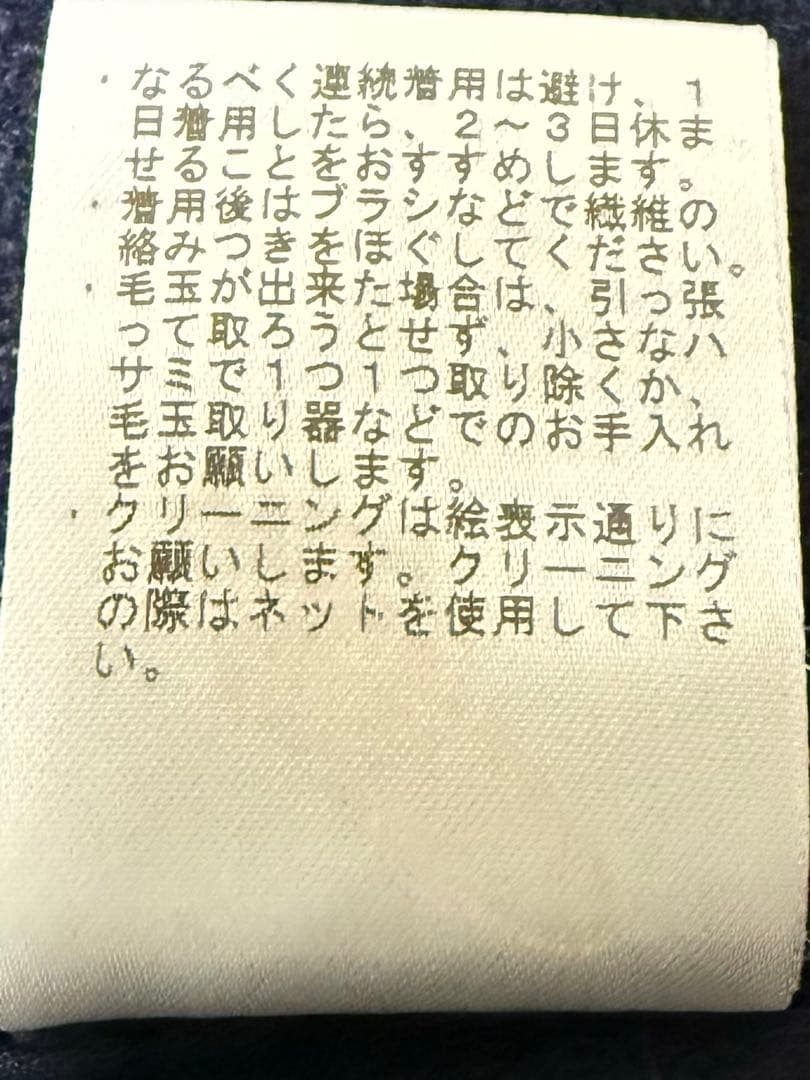 ・なるべく連続着用は避け、1
日着用したら、2～3日休ま
せることをおすすめします。
・着用後はブラシなどで繊維の
絡みつきをほぐしてください。
・毛玉が出来た場合は、引っ張
って取ろうとせず、小さなハ
サミで1つ1つ取り除くか、
毛玉取り器などでのお手入れ
をお願いします。
・クリーニングは絵表示通りに
お願いします。クリーニング
の際はネットを使用して下さ
い。